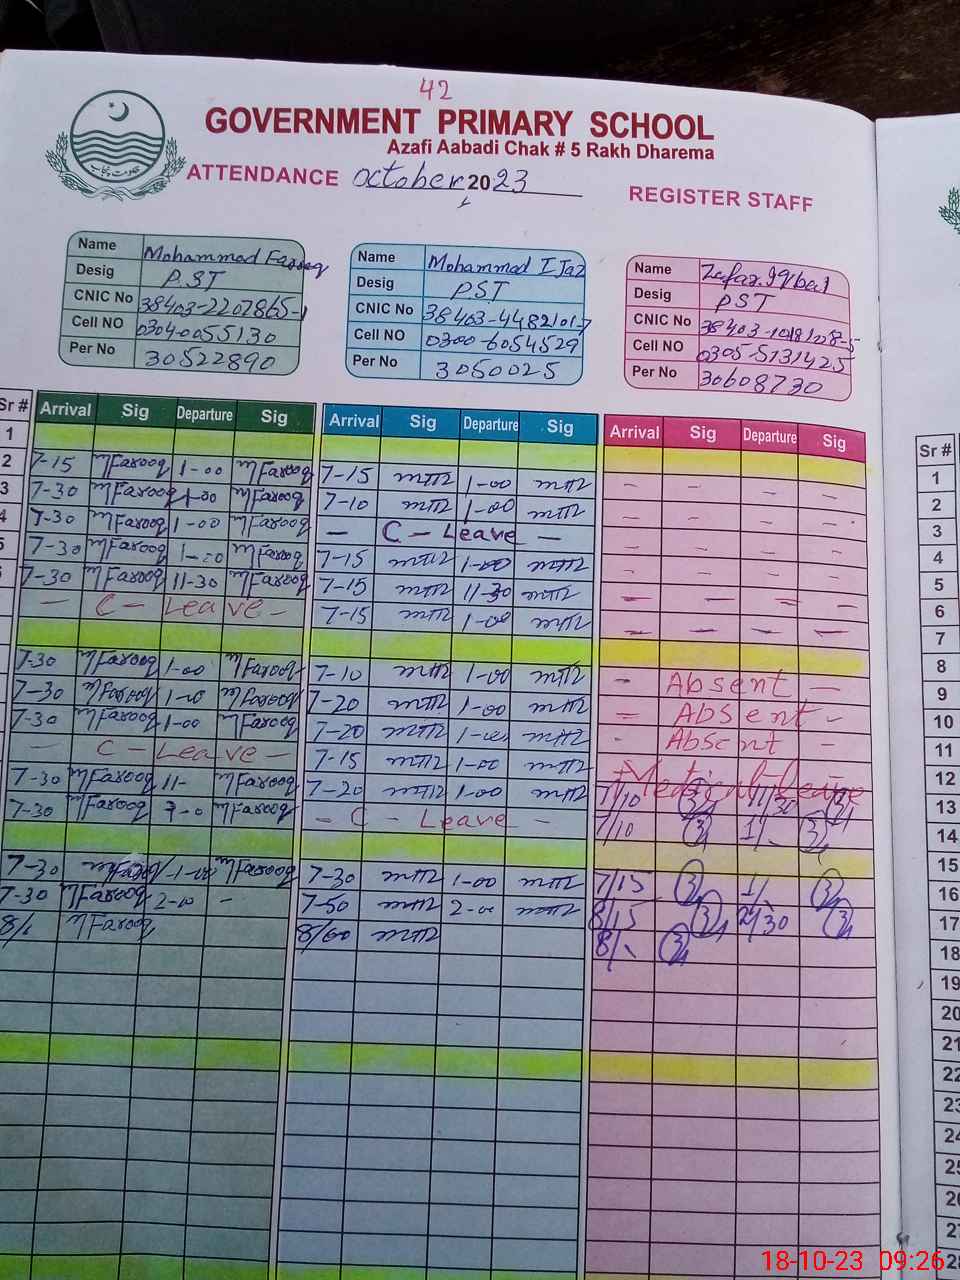 42
GOVERNMENT PRIMARY SCHOOL
Azafi Aabadi Chak # 5 Rakh Dharema
ATTENDANCE October 2023 REGISTER STAFF
Name Mohammad Farooq Name Mohammad IJaz Name Zafar Iqbal
Desig P.ST Desig PST Desig PST
CNIC No 38403-2207865-1 CNIC No 38403-4482101-7 CNIC No
Cell NO 0304-0055130 Cell NO 0300-6054529 Cell NO 0305-5131425
Per No 30522890 Per No 3050025 Per No 30608730
Sr # Arrival Sig Departure Sig Arrival Sig Departure Sig Arrival Sig Departure Sig Sr #
1 1
2 7-15 MFarooq 1-00 MFarooq 7-15 1-00 - - - - 2
3 7-30 MFarooq 1-00 MFarooq 7-10 1-00 - - - - 3
4 7-30 MFarooq 1-00 MFarooq - C - Leave - - - - - 4
5 7-30 MFarooq 1-00 MFarooq 7-15 1-00 - - - - 5
6 7-30 MFarooq 11-30 MFarooq 7-15 11-30 - - - - 6
- C - Leave - 7-15 1-00 - - - - 7
8
7-30 MFarooq 1-00 MFarooq 7-10 1-00 - Absent - 9
7-30 MFarooq 1-00 MFarooq 7-20 1-00 - Absent - 10
7-30 MFarooq 1-00 MFarooq 7-20 1-00 - Absent - 11
- C - Leave - 7-15 1-00 Medical Leave 12
7-30 MFarooq 11- MFarooq 7-20 1-00 7/10 11/30 13
7-30 MFarooq MFarooq - C - Leave - 7/10 1/- 14
15
7-30 MFarooq 1-00 MFarooq 7-30 1-00 7/15 1/ 16
7-30 MFarooq 2-00 - 7-50 2-00 8/15 2/30 17
8/ MFarooq 8/00 8/ 18
19
20
21
22
23
24
25
26
27
28
18-10-23 09:26